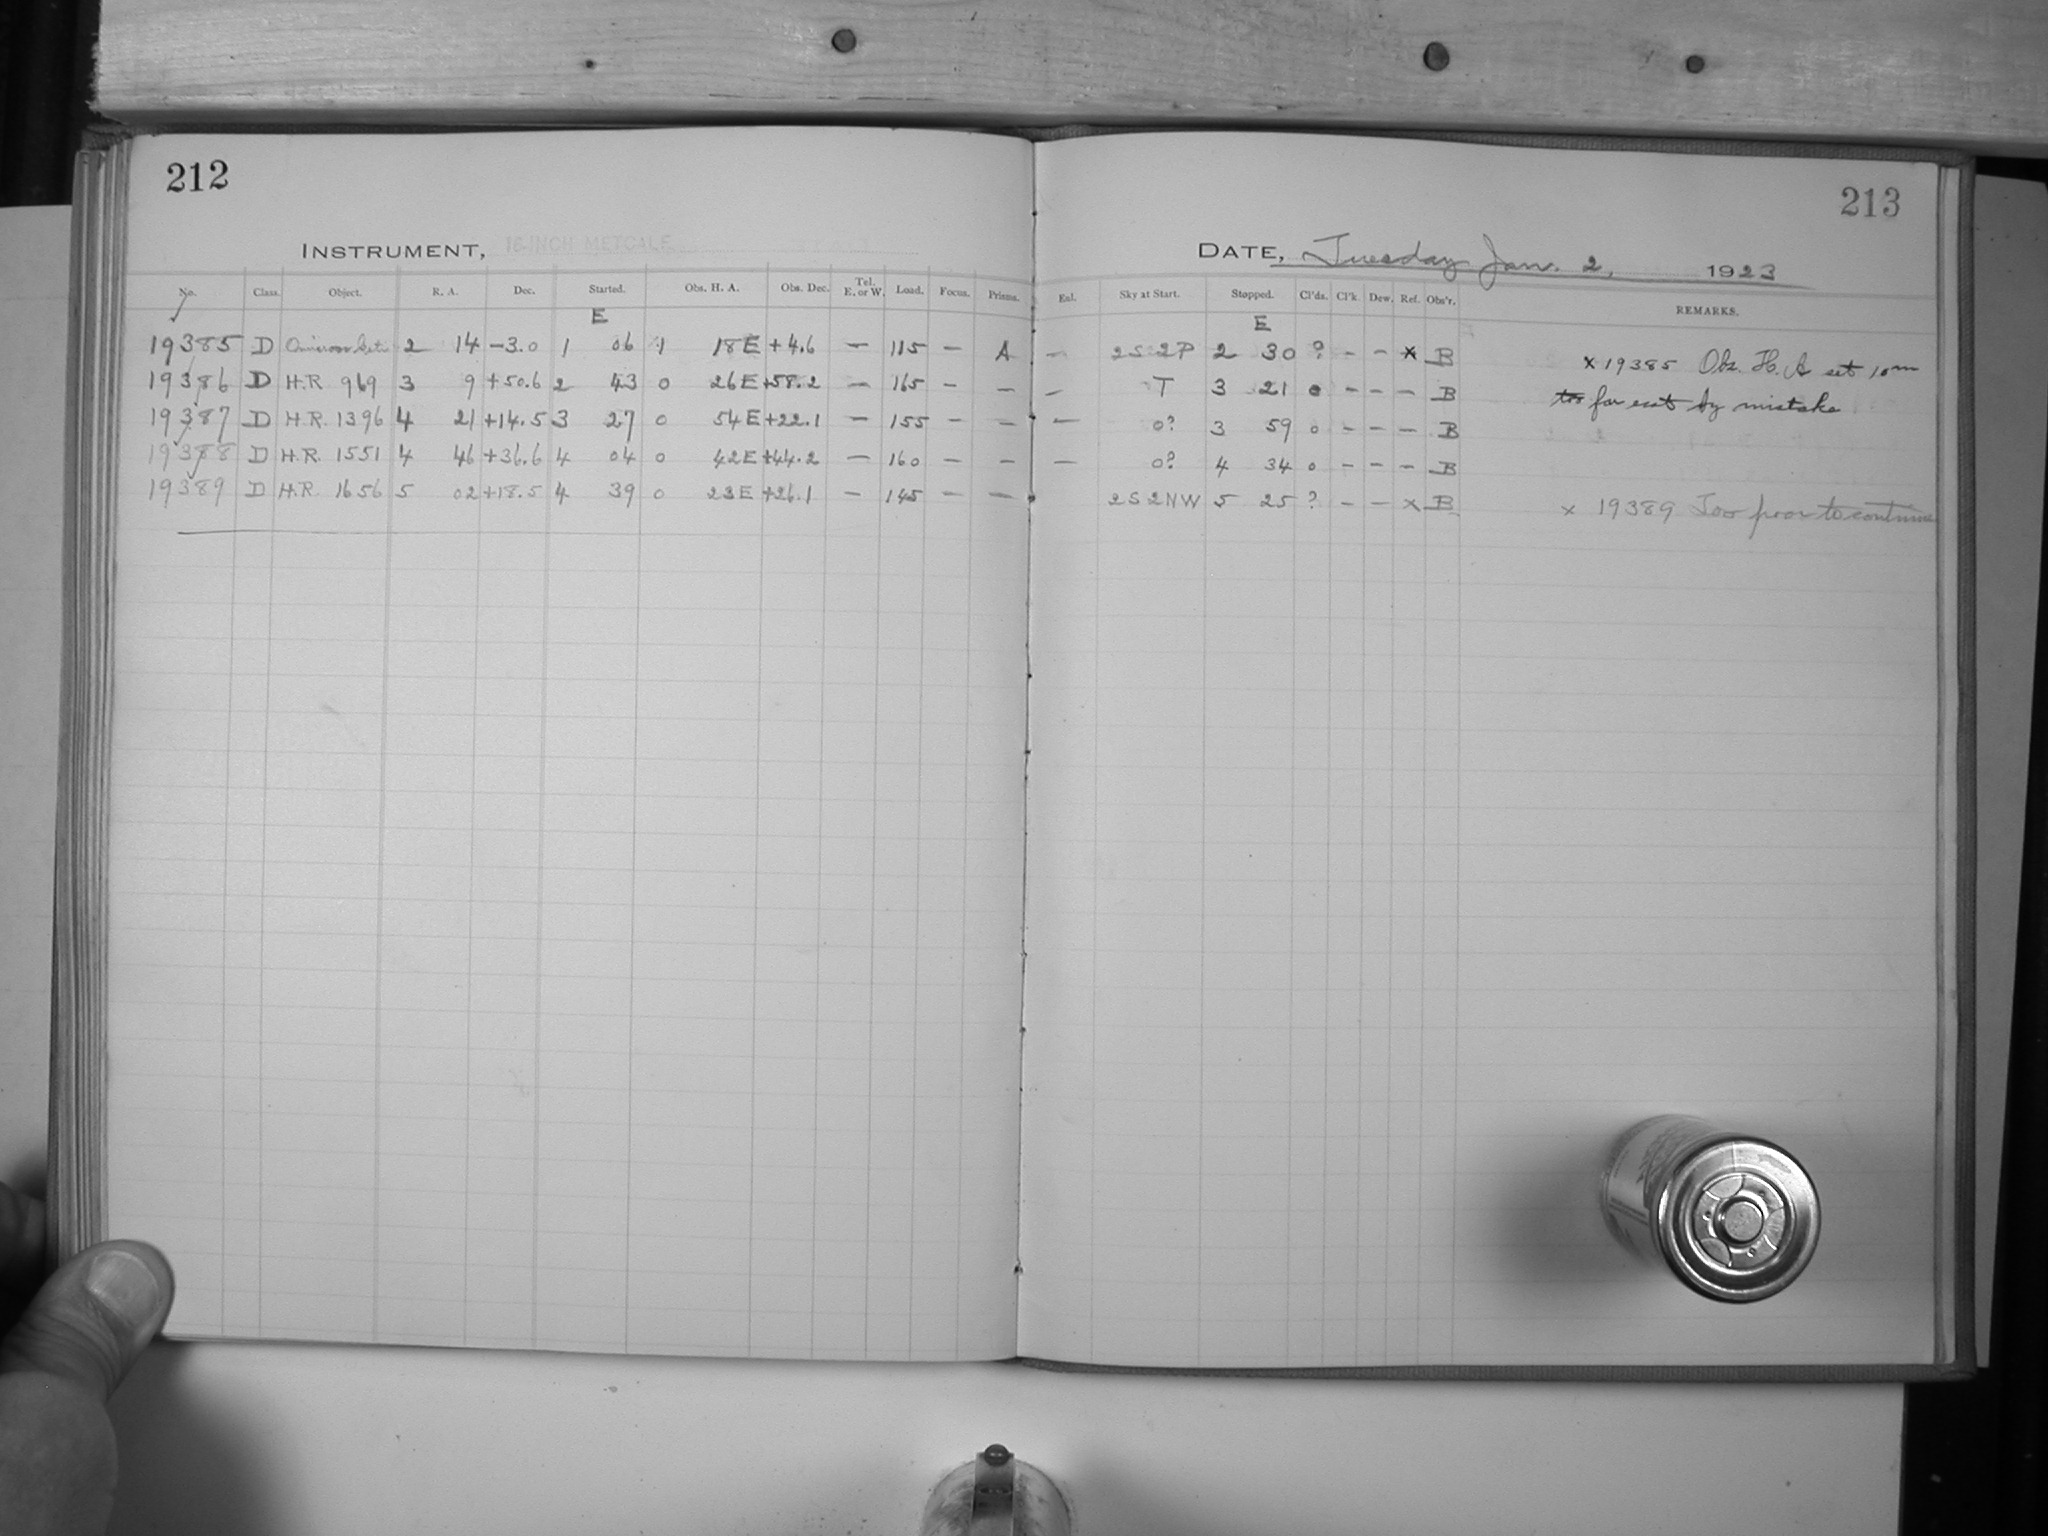 212
213
INSTRUMENT, 16-INCH METCALF
DATE, Tuesday Jan. 2, 1923
No. Class. Object. R. A. Dec. Started. Obs. H. A. Obs. Dec. Tel. E. or W. Load. Focus. Prisms. Enl. Sky at Start. Stopped. Cl'ds. Cl'k. Dew. Ref. Obs'r. REMARKS.
E E
19385 D Omicron Ceti 2 14 -3.0 1 06 1 18E +4.6 — 115 — A — 2S 2P 2 30 ? - - x B x 19385 Obs. H. A set 10m
19386 D H.R. 969 3 9 +50.6 2 43 0 26E +58.2 — 165 — — — T 3 21 0 - - - B too far east by mistake
19387 D H.R. 1396 4 21 +14.5 3 27 0 54E +22.1 — 155 — — — 0? 3 59 0 - - - B
19388 D H.R. 1551 4 46 +36.6 4 04 0 42E +44.2 — 160 — — — 0? 4 34 0 - - - B
19389 D H.R. 1656 5 02 +18.5 4 39 0 23E +26.1 — 145 — — 2S 2NW 5 25 ? - - x B x 19389 Too poor to continue